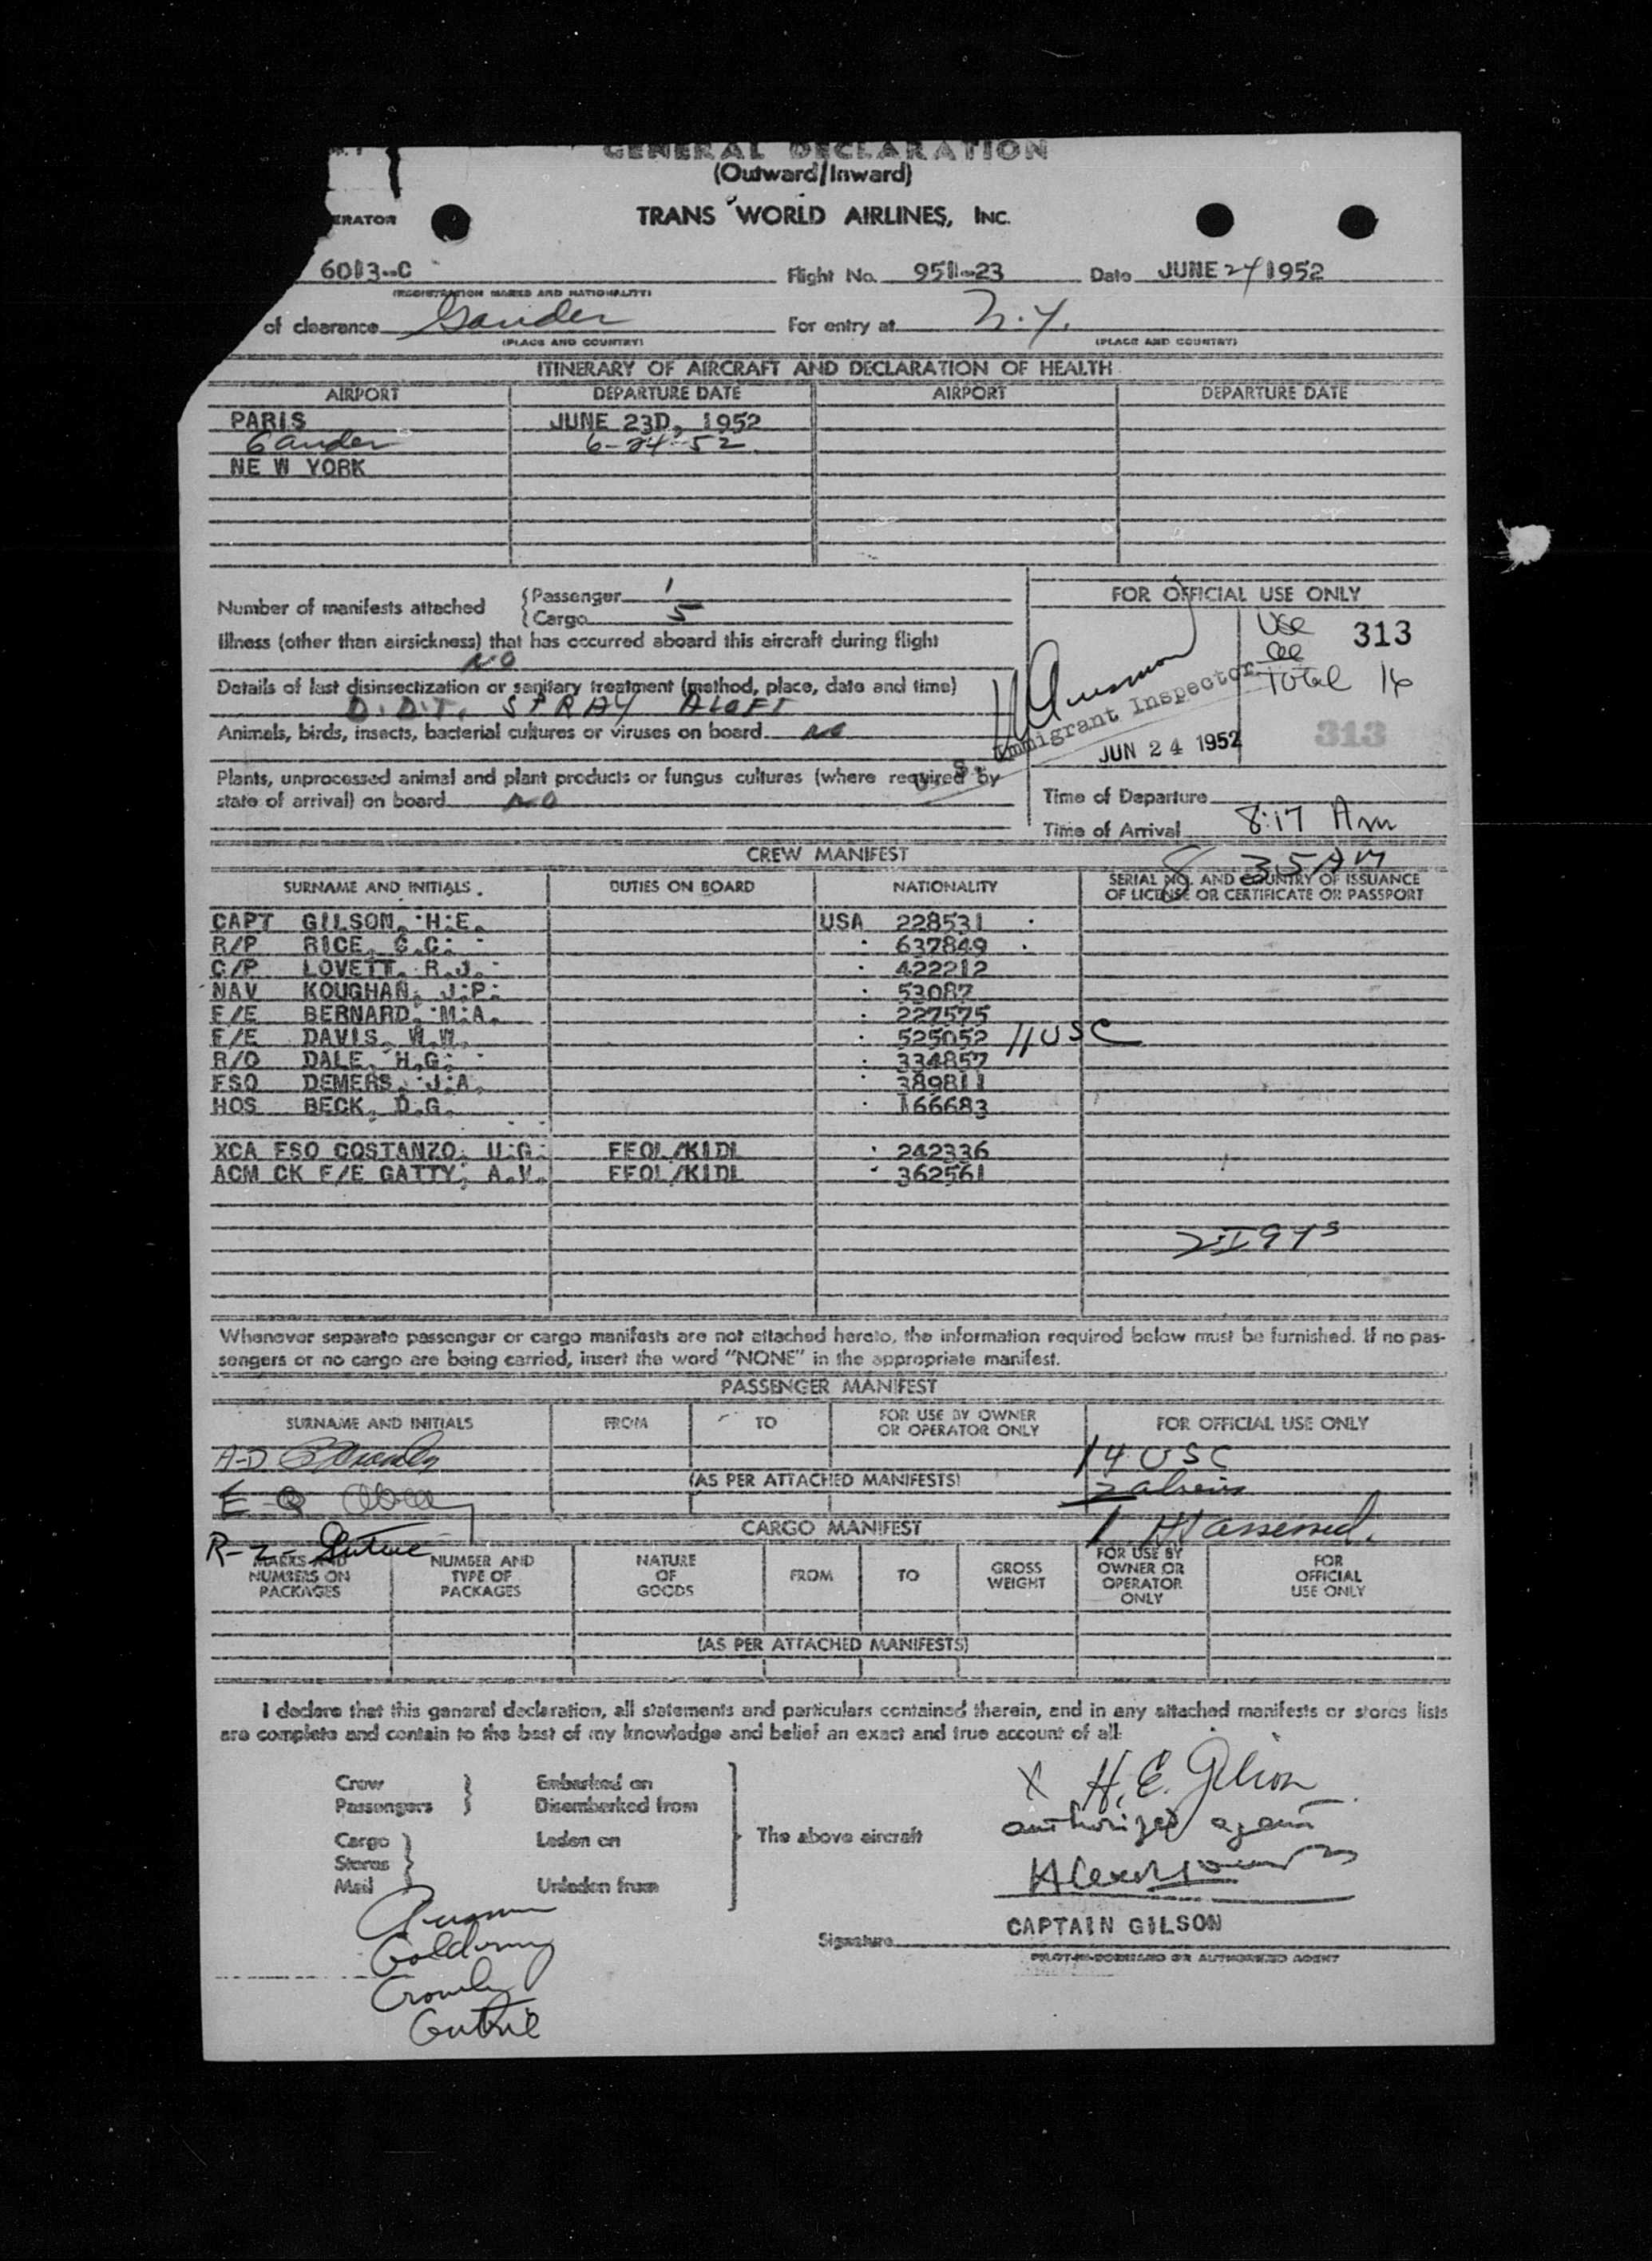 GENERAL DECLARATION
(Outward/Inward)
ERATOR
TRANS WORLD AIRLINES, INC.
6013-C Flight No. 951-23 Date JUNE 24 1952
(REGISTRATION MARKS AND NATIONALITY)
of clearance Gander For entry at N.Y.
(PLACE AND COUNTRY) (PLACE AND COUNTRY)
ITINERARY OF AIRCRAFT AND DECLARATION OF HEALTH
AIRPORT DEPARTURE DATE AIRPORT DEPARTURE DATE
PARIS JUNE 23D, 1952
Gander 6-24-52
NEW YORK
Number of manifests attached {Passenger 1
{Cargo 5
FOR OFFICIAL USE ONLY
Illness (other than airsickness) that has occurred aboard this aircraft during flight
NO
313
Total 16
Details of last disinsectization or sanitary treatment (method, place, date and time)
D.D.T. SPRAY ALOFT
Immigrant Inspector
Animals, birds, insects, bacterial cultures or viruses on board NO
JUN 24 1952
313
Plants, unprocessed animal and plant products or fungus cultures (where required by
state of arrival) on board NO
Time of Departure
Time of Arrival 8:17 Am
8 35 AM
CREW MANIFEST
SURNAME AND INITIALS. DUTIES ON BOARD NATIONALITY SERIAL NO. AND COUNTRY OF ISSUANCE
OF LICENSE OR CERTIFICATE OR PASSPORT
CAPT GILSON, H.E. USA 228531
R/P RICE, C.C. 637849
C/P LOVETT, R.J. 422212
NAV KOUGHAN, J.P. 53087
F/E BERNARD, M.A. 227575
F/E DAVIS, W.W. 525052 11 USC
R/O DALE, H.G. 334857
FSO DEMERS, J.A. 389811
HOS BECK, D.G. 166683
XCA FSO COSTANZO, U.G. FFOL/KIDL 242336
ACM CK F/E GATTY, A.V. FFOL/KIDL 362561
Whenever separate passenger or cargo manifests are not attached hereto, the information required below must be furnished. If no pas-
sengers or no cargo are being carried, insert the word "NONE" in the appropriate manifest.
PASSENGER MANIFEST
SURNAME AND INITIALS FROM TO FOR USE BY OWNER
OR OPERATOR ONLY
FOR OFFICIAL USE ONLY
A-D
14 USC
(AS PER ATTACHED MANIFESTS)
2 aliens
CARGO MANIFEST
1 Ht assessed.
R-2- Guthrie
MARKS AND
NUMBERS ON
PACKAGES
NUMBER AND
TYPE OF
PACKAGES
NATURE
OF
GOODS
FROM TO GROSS
WEIGHT
FOR USE BY
OWNER OR
OPERATOR
ONLY
FOR
OFFICIAL
USE ONLY
(AS PER ATTACHED MANIFESTS)
I declare that this general declaration, all statements and particulars contained therein, and in any attached manifests or stores lists
are complete and contain to the best of my knowledge and belief an exact and true account of all:
Crew } Embarked on
Passengers } Disembarked from
Cargo } Laden on
Stores }
Mail } Unladen from
} The above aircraft
X H.E. Gilson
authorized agent
CAPTAIN GILSON
Signature
PILOT-IN-COMMAND OR AUTHORIZED AGENT
Crowley
Guthrie